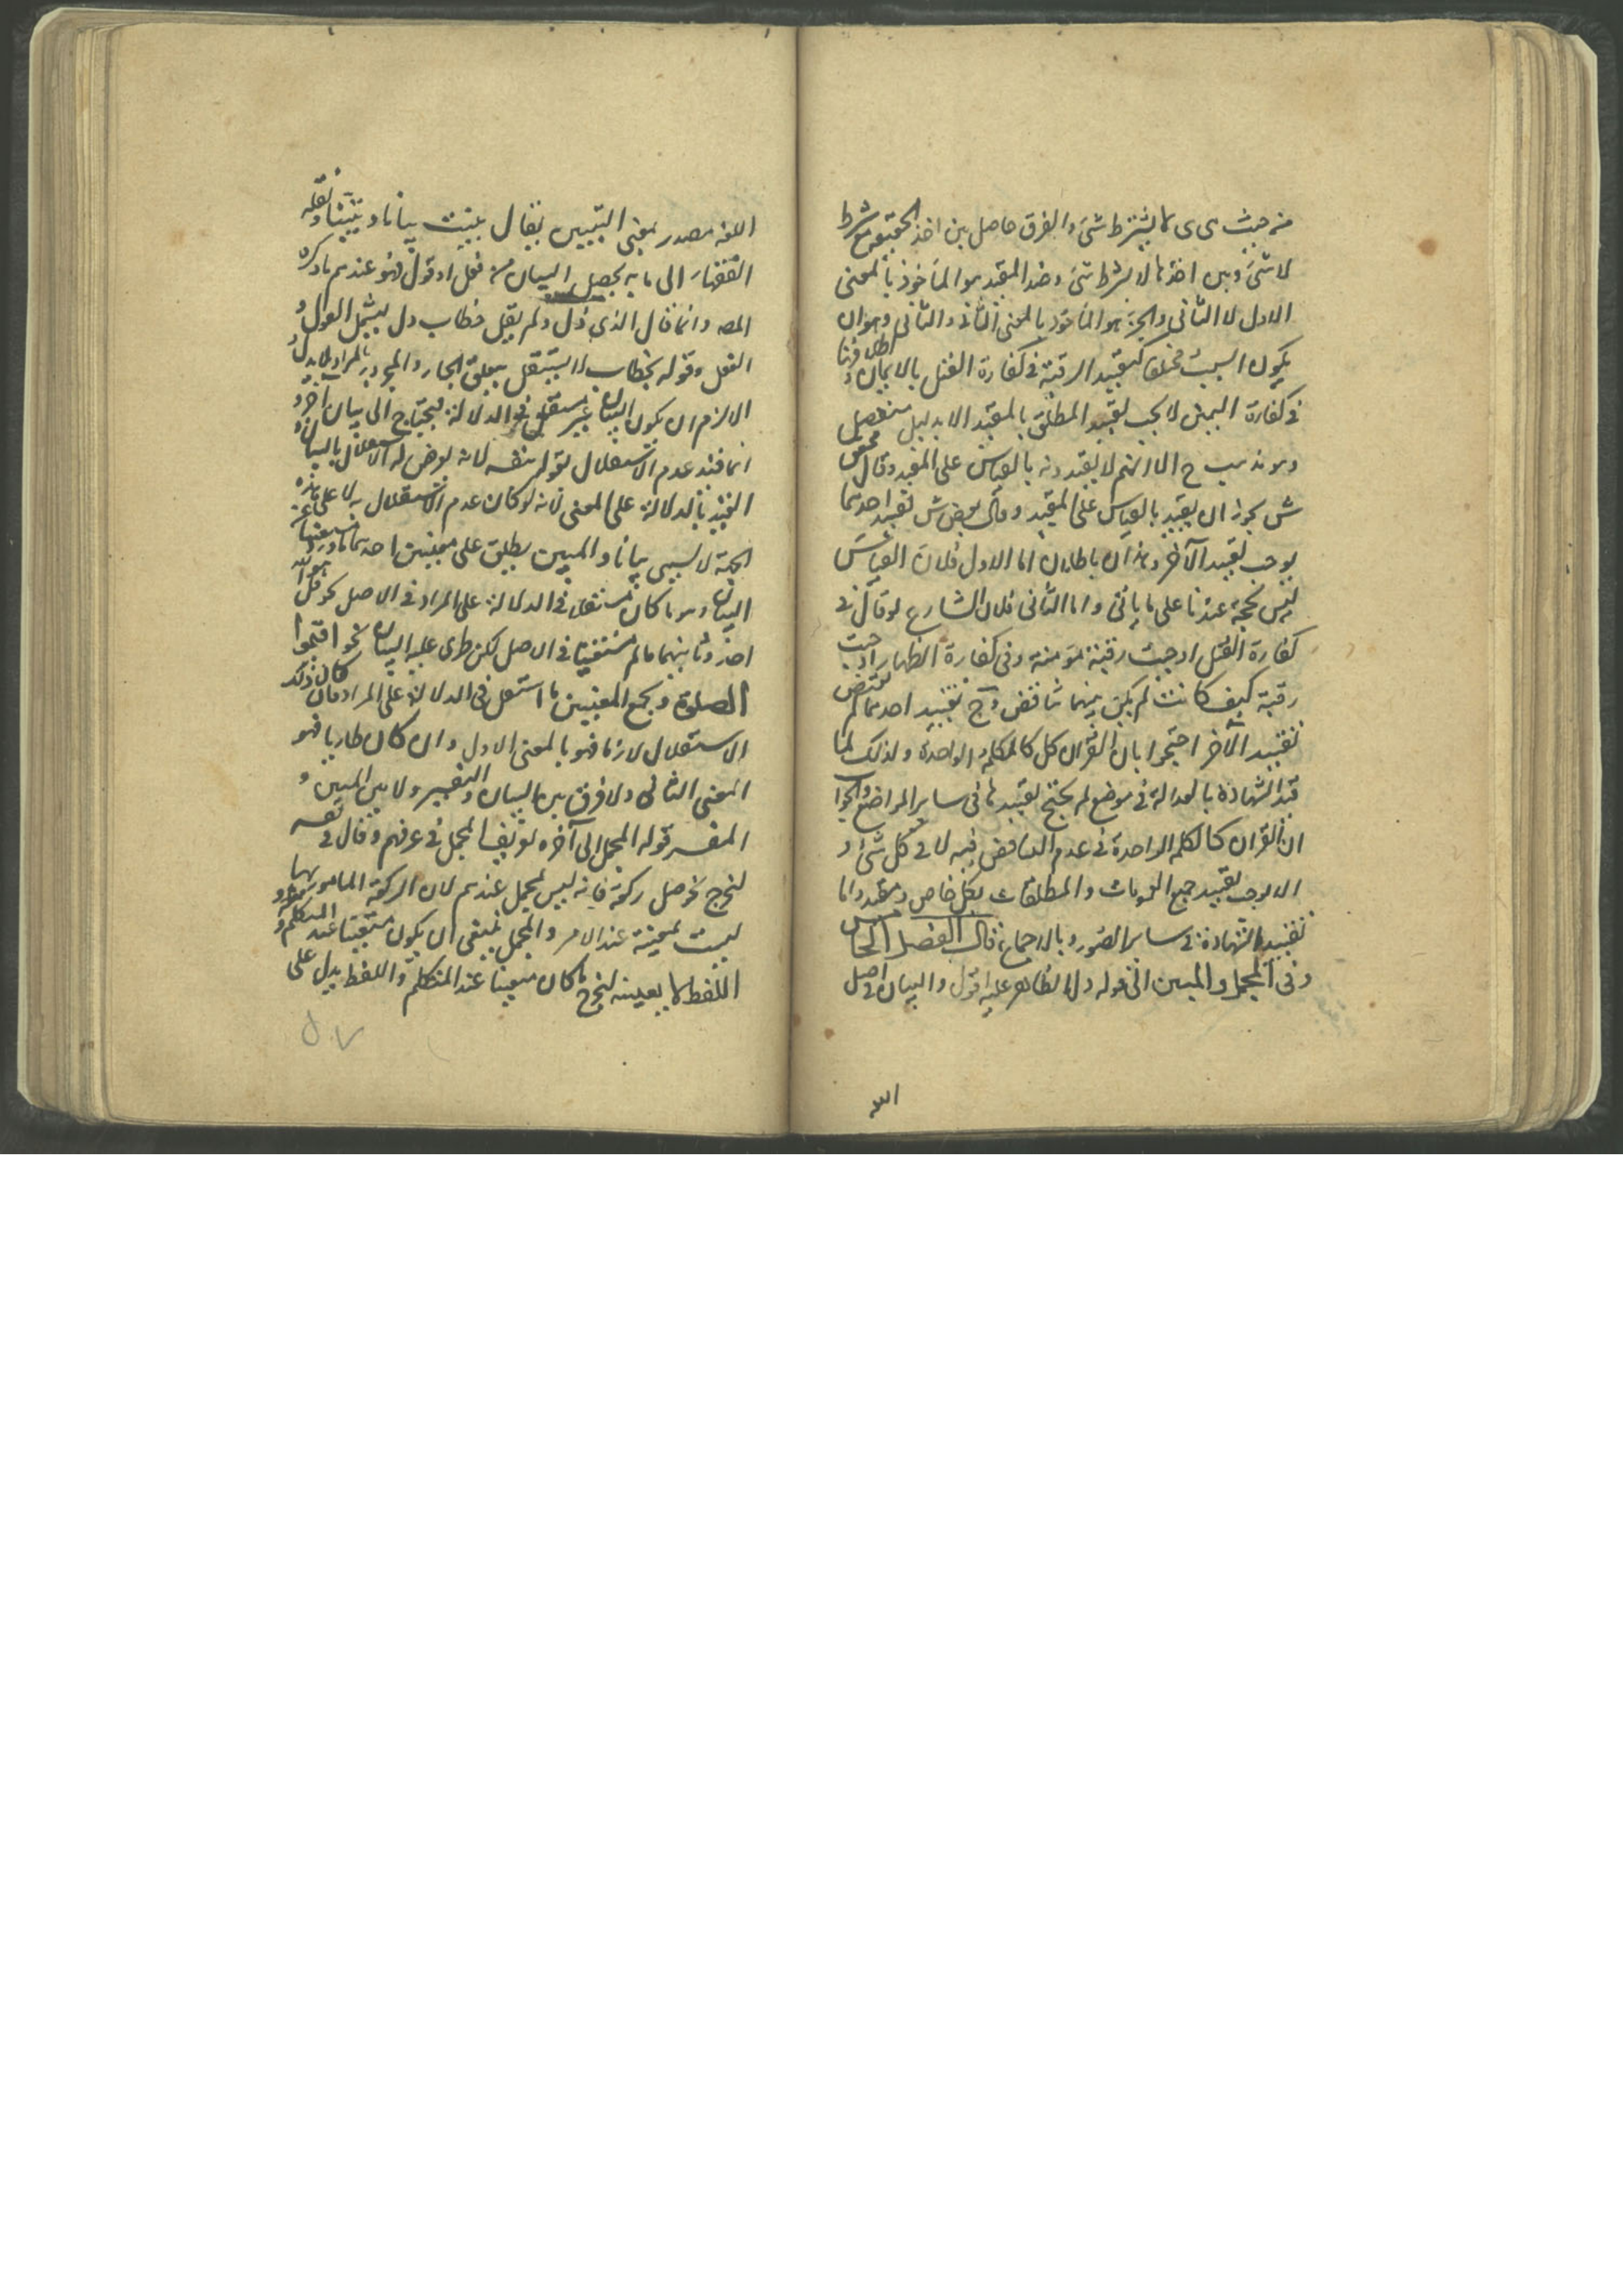 من حيث هي هي لا بشرط شئ والفرق حاصل بين اخذ الحقيقة مع شرط
لا شئ وبين اخذها لا بشرط شئ وضد المقيد هو المأخوذ بالمعنى
الاول لا الثاني والجزء هو المأخوذ بالمعنى الثاني والثاني وهو ان
يكون السبب مختلفا كتقييد الرقبة في كفارة القتل بالايمان واطلاقها
في كفارة اليمين لا يجب تقييد المطلق بالمقيد الا بدليل منفصل
وهو مذهب ح الا انهم لا يقيدونه بالقياس على المقيد وقال محققو
ش يجوز ان يقيد بالقياس على المقيد وقال بعض ش تقييد احدهما
يوجب تقييد الآخر وهذان باطلان اما الاول فلان القياس
ليس بحجة عندنا على ما يأتي واما الثاني فلان الشارع لو قال في
كفارة القتل اوجبت رقبة مؤمنة وفي كفارة الظهار اوجبت
رقبة كيف كانت لم يكن بينهما تناقض وح تقييد احدهما لم يقتض
تقييد الآخر احتجوا بان القرآن كل كالكلمة الواحدة ولذلك لما
قيد الشهادة بالعدالة في موضع لم يحتج تقييدها في ساير المواضع والجواب
ان القرآن كالكلمة الواحدة في عدم التناقض فيه لا في كل شئ و
الا لوجب تقييد جميع العمومات والمطلقات بكل خاص ومقيد واما
تقييد الشهادة في ساير الصور وبالاجماع قال الفصل الخامس
وفي المجمل والمبين الى قوله دل الظاهر عليه اقول والبيان في اصل
اللغة مصدر بمعنى التبيين يقال بينت بيانا وتبيينا ونقله
الفقهاء الى ما به يحصل البيان من فعل او قول فهو عندهم ما ذكره
المصه وانما قال الذي دل ولم يقل خطاب دل ليشمل القول و
الفعل وقوله بخطاب لا يستقل يتعلق الجار والمجرور بالمراد لا بدل و
الا لزم ان يكون البيان غير مستقل في الدلالة فيحتاج الى بيان آخر و
انما قيد عدم الاستقلال بقوله بنفسه لانه يعرض له الاستقلال بالبيان و
التقييد بالدلالة على المعنى لانه لو كان عدم الاستقلال به لا على هذه
الجهة لا يسمى بيانا والمبين يطلق على معنيين احدهما
البيان وهو ما كان مستقلا في الدلالة على المراد في الاصل نحو قل هو الله
احد وثانيهما ما لم مستغنيا في الاصل لكن طرى عليه البيان نحو اقيموا
الصلوة ويجمع المعنيين ما استقل في الدلالة على المراد فان كان ذلك
الاستقلال لازما فهو بالمعنى الاول وان كان طاريا فهو
المعنى الثاني ولا فرق بين البيان والتفسير ولا بين المبين و
المفسر قوله المجمل الى آخره تعريف المجمل في عرفهم وقال في نفسه
ليخرج نحو صل ركعة فانه ليس بمجمل عندهم لان الركعة المامور بها
ليست بمعينة عند الامر والمجمل ينبغي ان يكون متعينا عند المتكلم و
اللفظ لا يعينه ليخرج ما كان متعينا عند المتكلم واللفظ يدل على